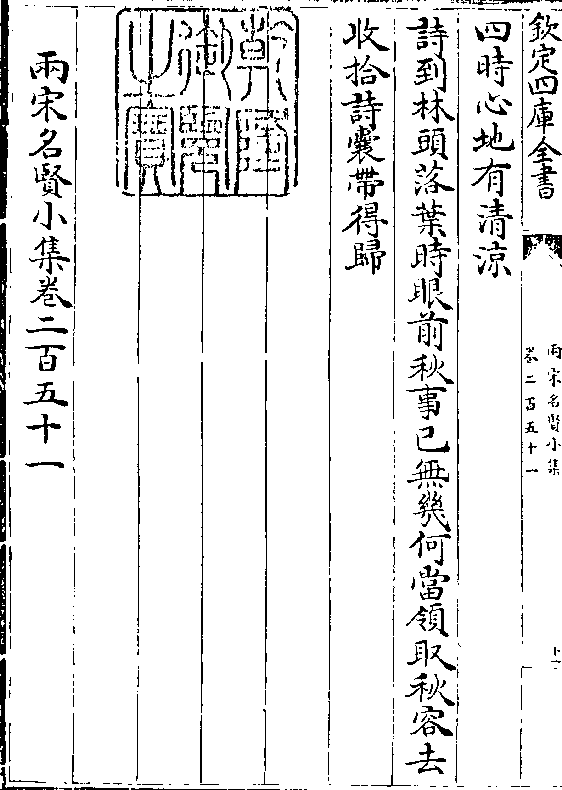 欽定四庫全書
兩宋名賢小集
卷二百五十一
四時心地有清涼
詩到林頭落葉時眼前秋事已無幾何當領取秋容去
收拾詩囊帶得歸
乾隆御覽之寶
兩宋名賢小集卷二百五十一